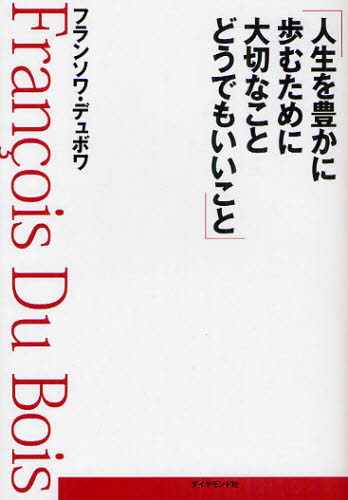 「人生を豊かに
歩むために
大切なこと
どうでもいいこと」
フランソワ・デュボワ
François Du Bois
ダイヤモンド社